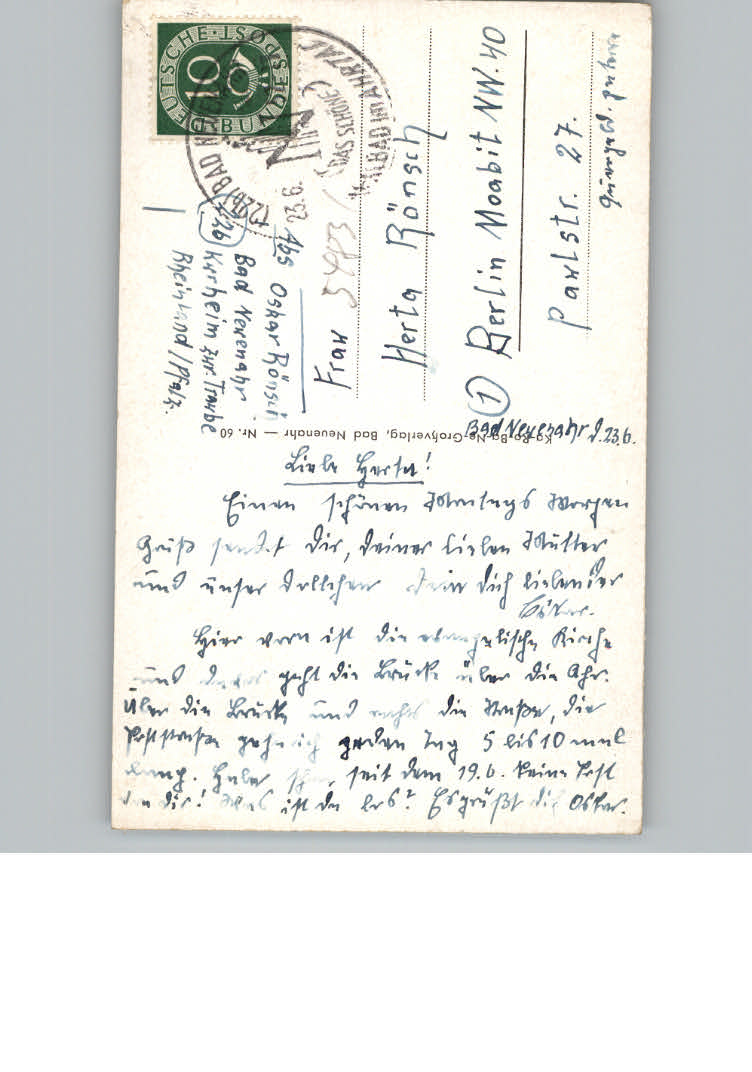 DEUTSCHE BUNDESPOST
10
(22b) BAD NEUENAHR
23.6.
(DAS SCHÖNE)
HEILBAD IM AHRTAL
5483/
Abs Oskar Rönsch
Bad Neuenahr
22b Kurheim zur Traube
Rheinland/Pfalz.
Frau
Herta Rönsch
(1) Berlin Moabit NW.40
Paulstr. 27.
Quergeb.
Ka-Ro-Ba-Na-Großverlag, Bad Neuenahr — Nr. 60
Bad Neuenahr d. 23.6.
Liebe Herta!
Einen schönen Montags Morgen
Gruß sendet Dir, deiner lieben Mutter
und unser Dollichen Dein dich liebender
Oskar.
Hier vorn ist die evangelische Kirche
und geht die Brücke über die Ahr.
Über die Brücke und rechts die Straße, die
Poststraße gehe ich jeden Tag 5 bis 10 mal
lang. Habe seit dem 19.6. keine Post
von dir! Was ist da los? Es grüßt dich Oskar.